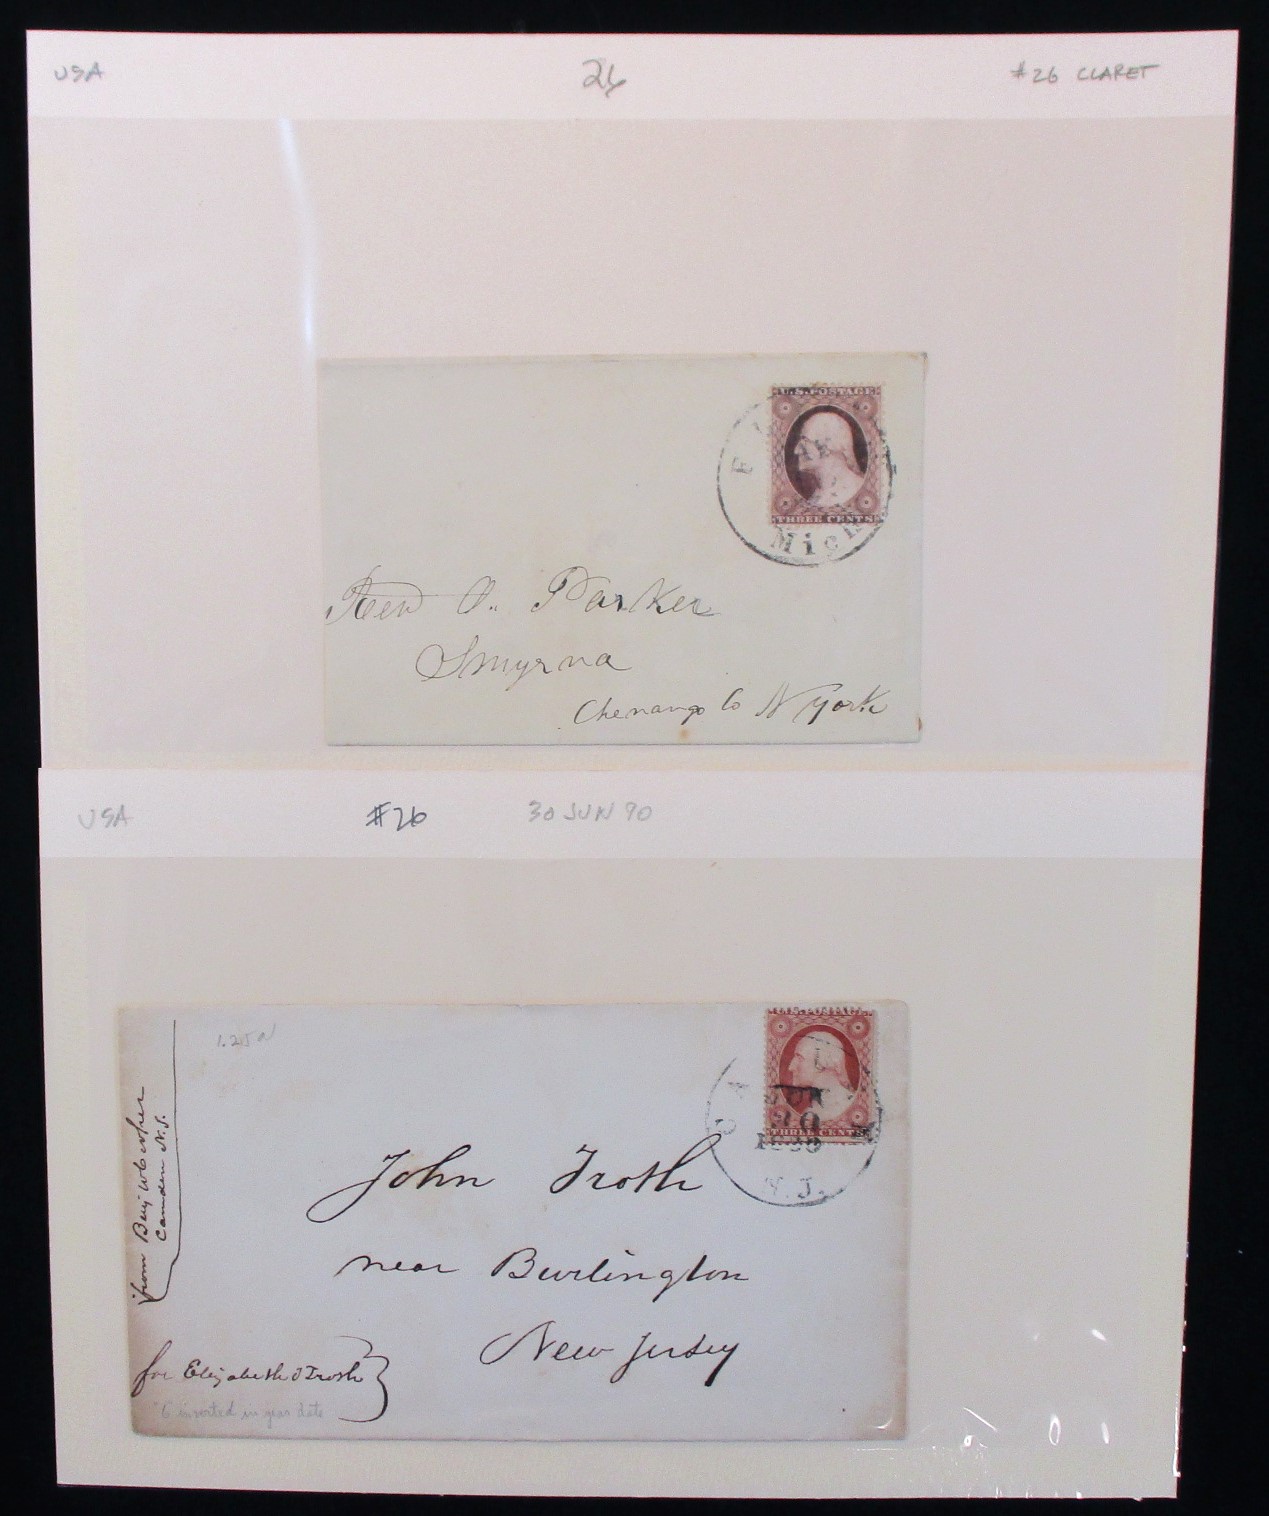 USA 26 #26 CLARET
U.S. POSTAGE
THREE CENTS
Mich
Rev O. Parker
Smyrna
Chenango Co N York
USA #26 30 JUN 90
U.S. POSTAGE
THREE CENTS
JUN
30
N.J.
John Troth
near Burlington
New Jersey
from Benj W Cooper
Camden N.J.
for Elizabeth J Troth
"6" inverted in year date